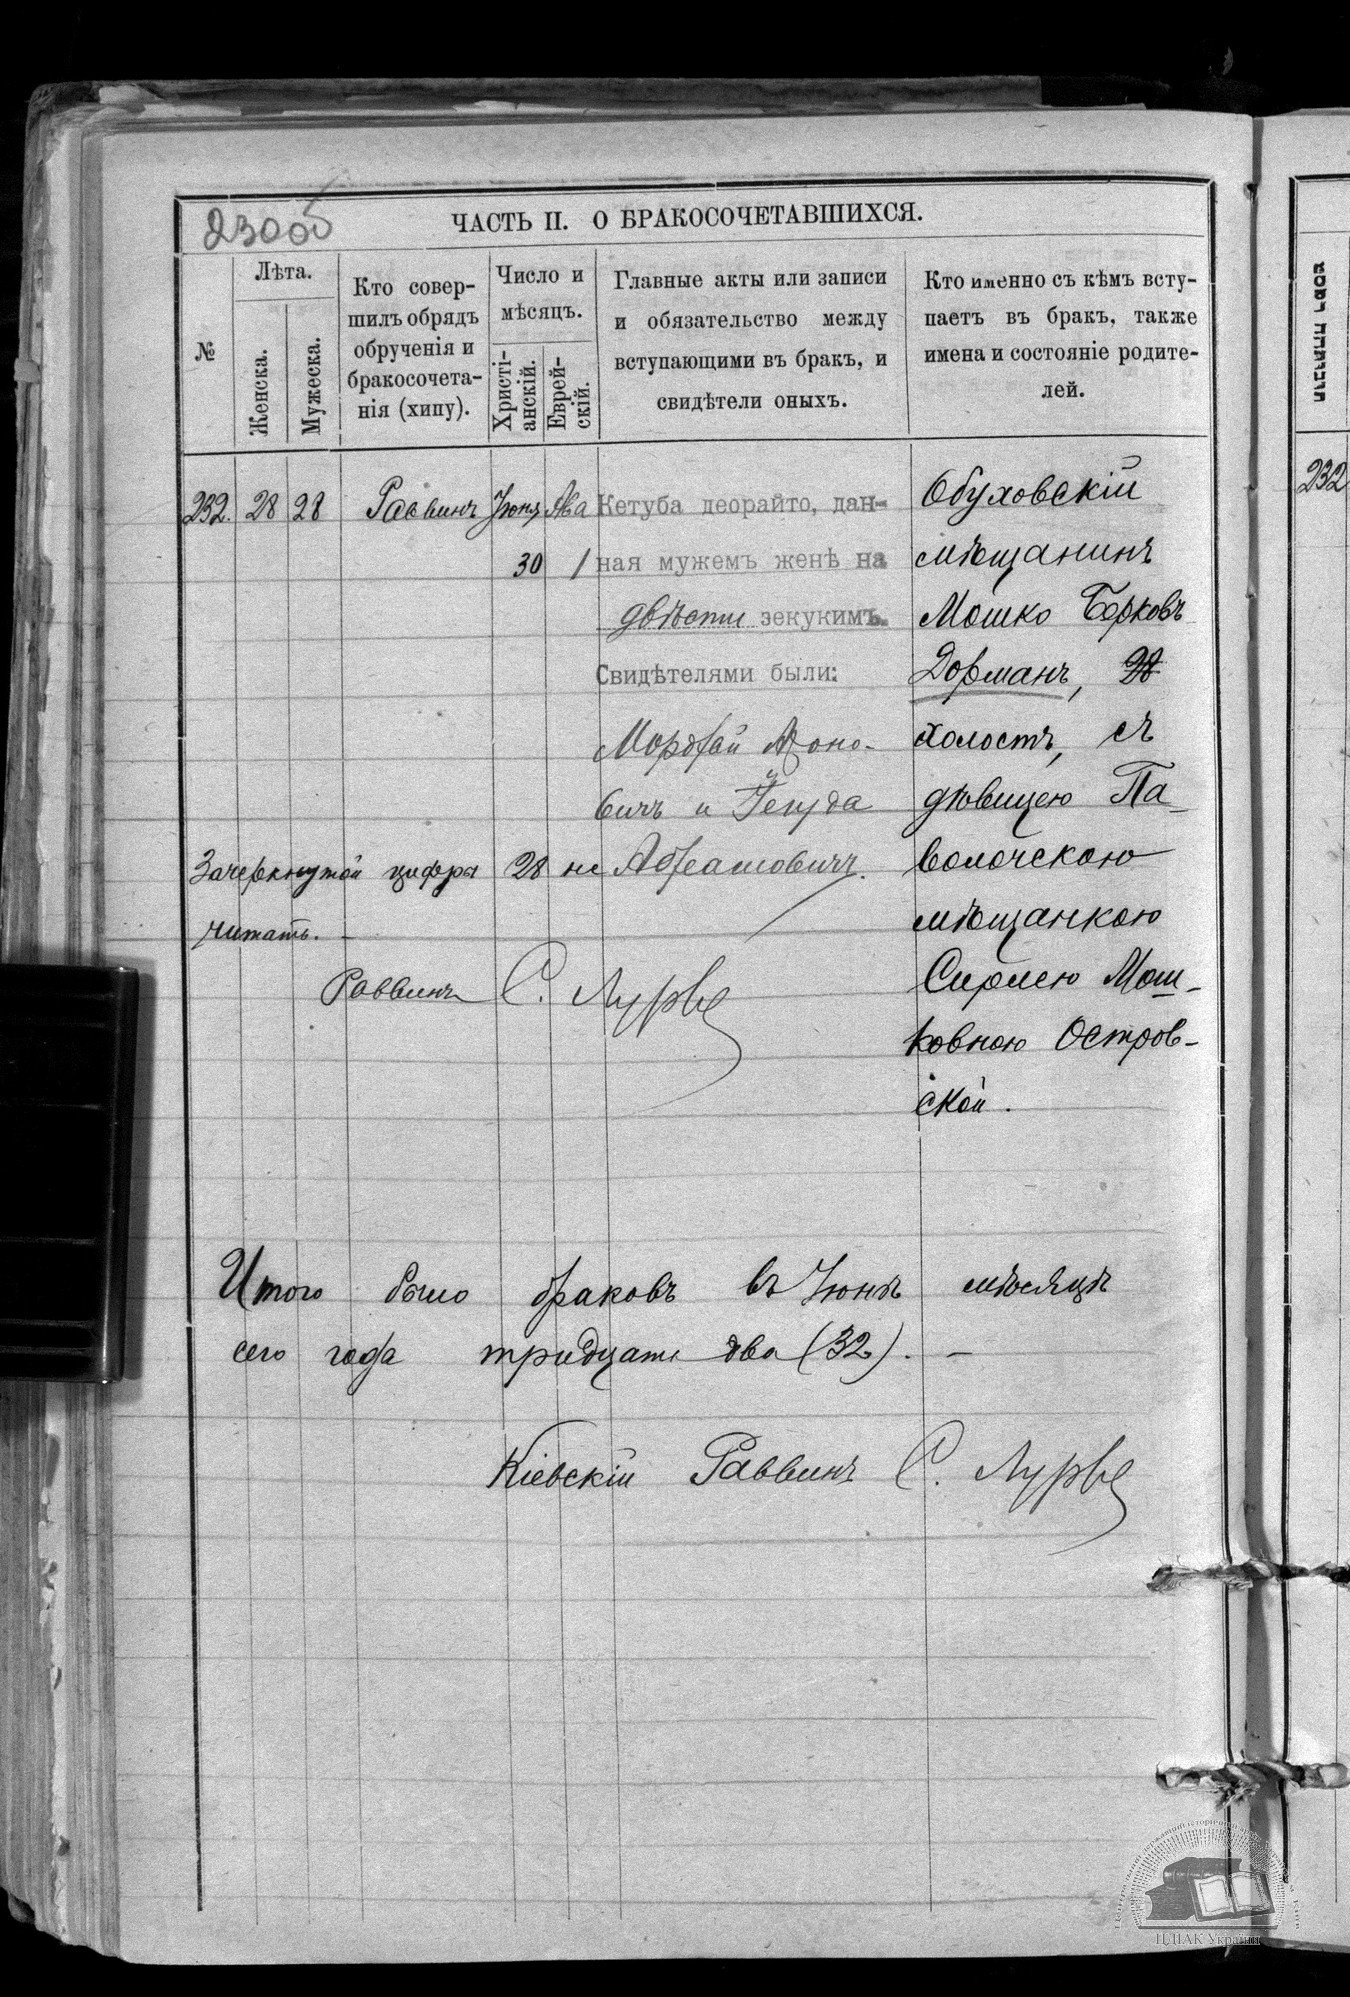 230об
ЧАСТЬ II. О БРАКОСОЧЕТАВШИХСЯ.
№
Лѣта.
Женска.
Мужеска.
Кто совер-
шилъ обрядъ
обрученія и
бракосочета-
нія (хипу).
Число и
мѣсяцъ.
Христі-
анскій.
Еврей-
скій.
Главные акты или записи
и обязательство между
вступающими въ бракъ, и
свидѣтели оныхъ.
Кто именно съ кѣмъ всту-
паетъ въ бракъ, также
имена и состояніе родите-
лей.
232. 28 28 Раввинъ Іюня Ава
30 1
Кетуба деорайто, дан-
ная мужемъ женѣ на
двѣсти зекукимъ.
Свидѣтелями были:
Мордхай Ароно-
вичъ и Іегуда
Абрамовичъ.
Обуховскій
мѣщанинъ
Мошко Берковъ
Дорманъ, 28
холостъ, съ
дѣвицею Па-
волочскою
мѣщанкою
Сирлею Мош-
ковною Остров-
ской.
Зачеркнутой цифры 28 не
читать. –
Раввинъ С. Лурье
Итого было браковъ въ Іюнѣ мѣсяцѣ
сего года тридцать два (32). –
Кіевскій Раввинъ С. Лурье
232
ЦДІАК України